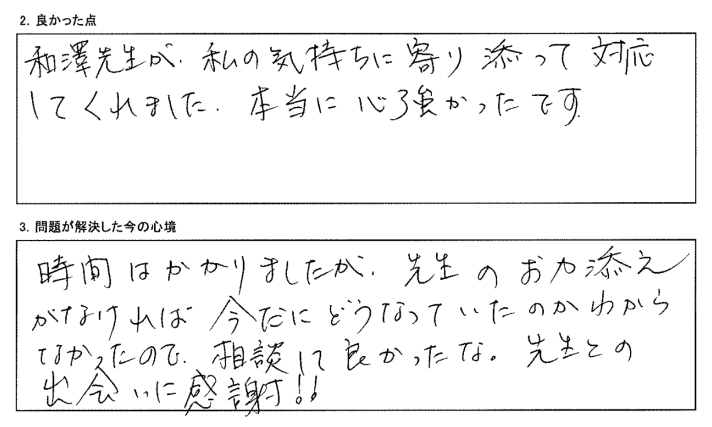 2. 良かった点
和澤先生が、私の気持ちに寄り添って対応
してくれました。本当に心強かったです
3. 問題が解決した今の心境
時間はかかりましたが、先生のお力添え
がなければ今だにどうなっていたのかわから
なかったので、相談して良かったな。先生との
出会いに感謝!!